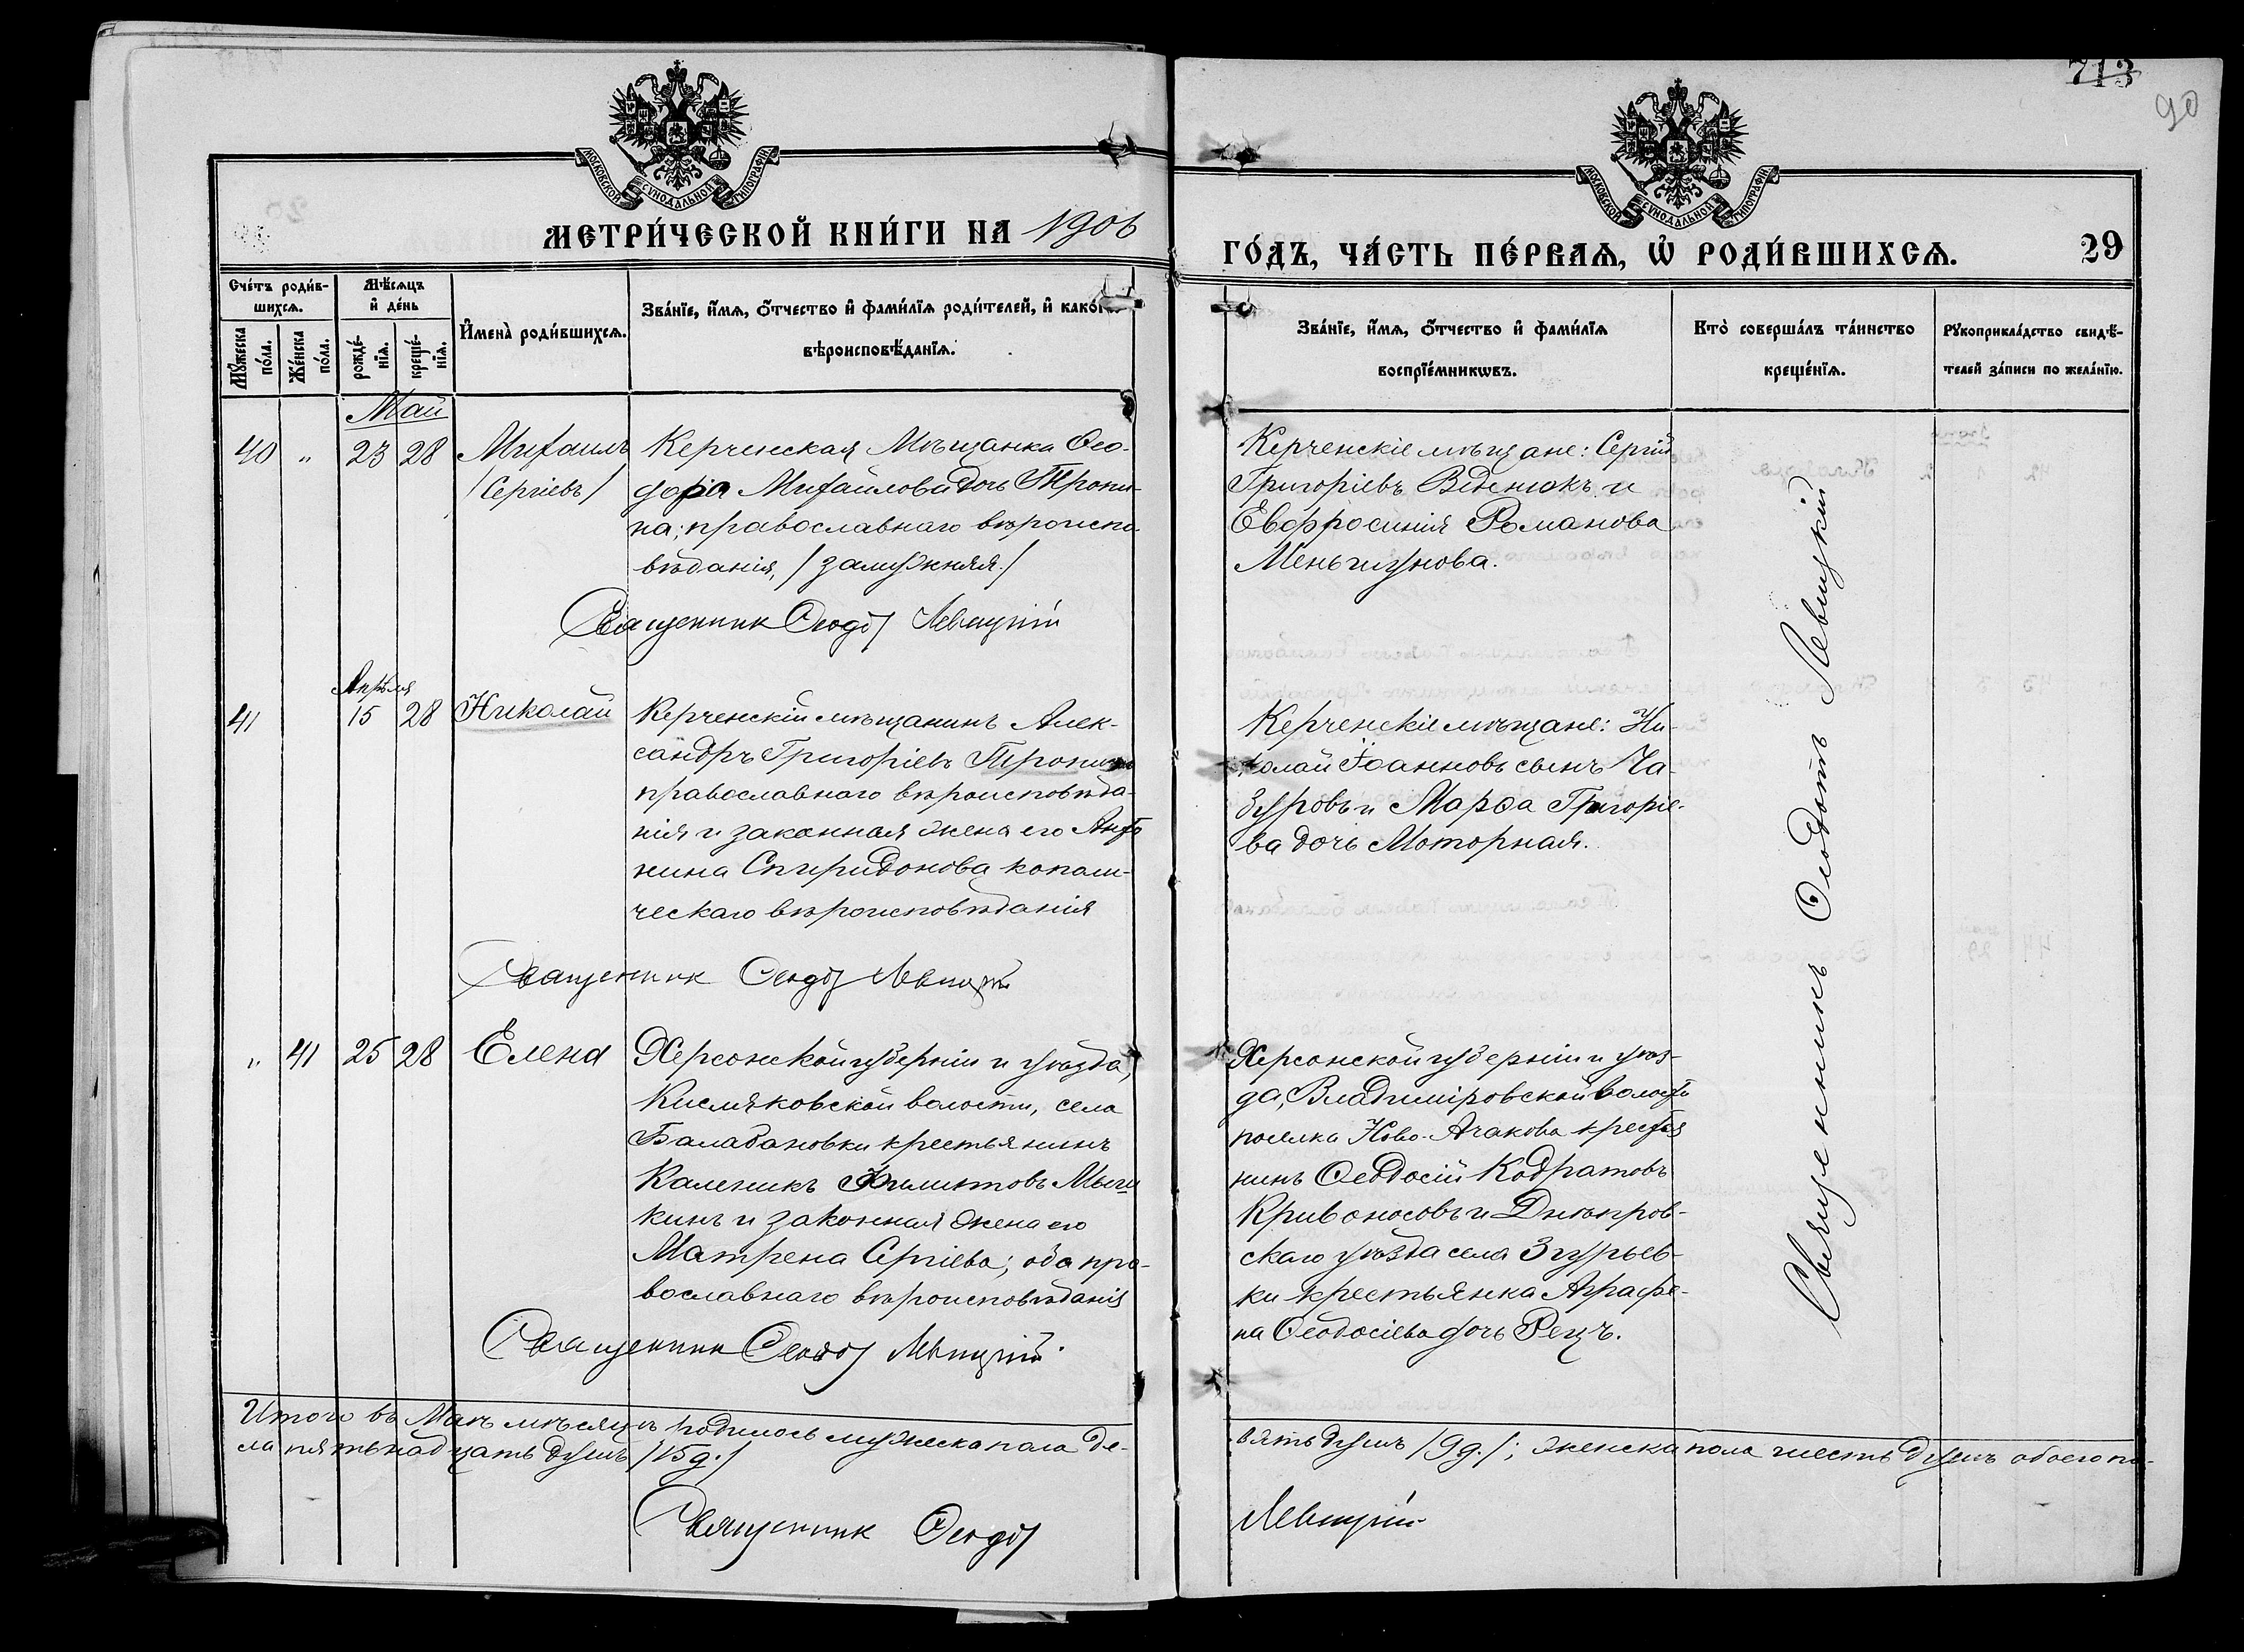 713
90
МОСКОВСКОЙ СѴНОДАЛЬНОЙ ТИПОГРАФІИ
МОСКОВСКОЙ СѴНОДАЛЬНОЙ ТИПОГРАФІИ
МЕТРИ́ЧЕСКОЙ КНИ́ГИ НА 1906
ГО́ДЪ, ЧА́СТЬ ПЕ́РВАѦ, Ѽ РОДИ́ВШИХСѦ.
29
Сче́тъ роди́в-
шихсѧ.
Мꙋ́жеска
по́ла.
Же́нска
по́ла.
Мѣ́сѧцъ
и҆ де́нь
рожде́-
нїѧ.
креще́-
нїѧ.
И҆мена̀ роди́вшихсѧ.
Зва́нїе, и҆́мѧ, ѻ҆́тчество и҆ фами́лїѧ роди́телей, и҆ како́гѡ
вѣроисповѣ́данїѧ.
Зва́нїе, и҆́мѧ, ѻ҆́тчество и҆ фами́лїѧ
воспрїе́мникѡвъ.
Кто̀ соверша́лъ та́инство
креще́нїѧ.
Рꙋкоприкла́дство свидѣ́-
телей за́писи по жела́нїю.
Май
40 " 23 28 Михаилъ
/Сергіевъ/
Керченская Мѣщанка Ѳео-
дора Михайлова дочь Тропи-
на; православнаго вѣроиспо-
вѣданія, /замужняя./
Священник Ѳеодот Левицкій
Керченскіе мѣщане: Сергій
Григоріевъ Веденюкъ и
Евфросинія Романова
Меньшунова.
Апрѣля
41 15 28 Николай
Керченскій мѣщанинъ Алек-
сандръ Григоріевъ Тропинъ
православнаго вѣроисповѣда-
нія и законная жена его Анто
нина Спиридонова католи-
ческаго вѣроисповѣданія
Священник Ѳеодот Левицкій
Керченскіе мѣщане: Ни-
колай Іоанновъ сынъ Ча-
зуровъ и Марѳа Григоріе-
ва дочь Моторная.
" 41 25 28 Елена
Херсонской губерніи и уѣзда,
Кисляковской волости, села
Балабановки крестьянинъ
Каленикъ Филиповъ Мыш
кинъ и законная жена его
Матрена Сергіева; оба пра-
вославнаго вѣроисповѣданія
Священник Ѳеодот Левицкій
Херсонской губерніи и уѣз-
да, Владиміровской волости
поселка Ново-Ачакова крестья
нинъ Ѳеодосій Кодратовъ
Кривоносовъ и Днѣпров-
скаго уѣзда села Згурьев-
ки крестьянка Аграфе-
на Ѳеодосіева дочь Рецъ.
Священникъ Ѳеодотъ Левицкій
Итого въ Маѣ мѣсяцѣ родилось мужеска пола де-
вять душъ /9 д./; женска пола шесть душъ обоего по-
ла пятьнадцать душъ /15 д./
Священник Ѳеодот
Левицкій